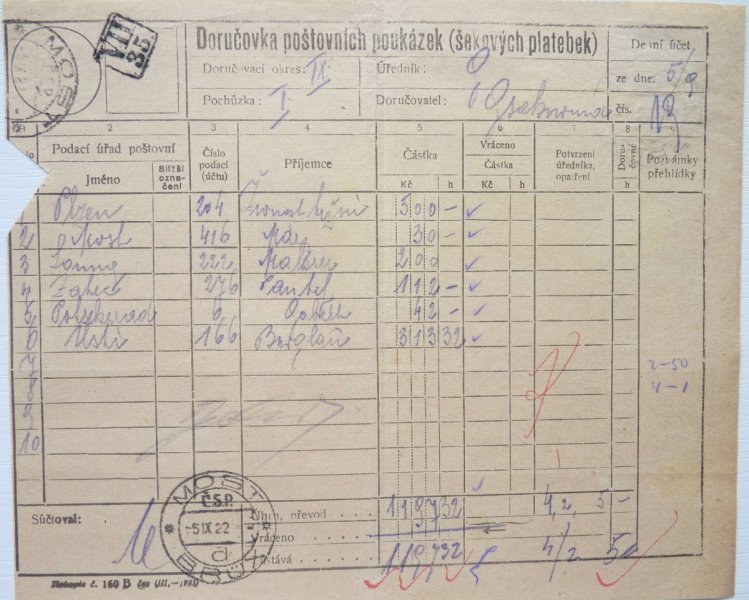 MOST
VII
35
Doručovka poštovních poukázek (šekových platebek)
Denní účet
Doručovací okres: IX.
Úředník:
ze dne: 5/9
Pochůzka: I.
Doručovatel:
čís. 13
1 2 3 4 5 6 7 8
Podací úřad poštovní
Číslo podací (účtu)
Příjemce
Částka
Vráceno
Potvrzení úředníka, opatření
Doručovné
Poznámky přehlídky
Jméno
Bližší označení
Částka
Kč h Kč h h
Plzen 204 500 -
2 Most 416 30 -
3 222 200
4 Žatec 276 112 -
5 6 42 -
6 Ustí 166 313 32
7
8
9
10
2-50
4-1
Súčtoval:
Úhrn, převod 1197 32 4,2, 5-
Vráceno
Zůstává 1197 32 4/2 50
MOST
Č.S.P.
-5 IX 22
d
BRÜX
Tiskopis č. 160 B čsp (III.—1921)